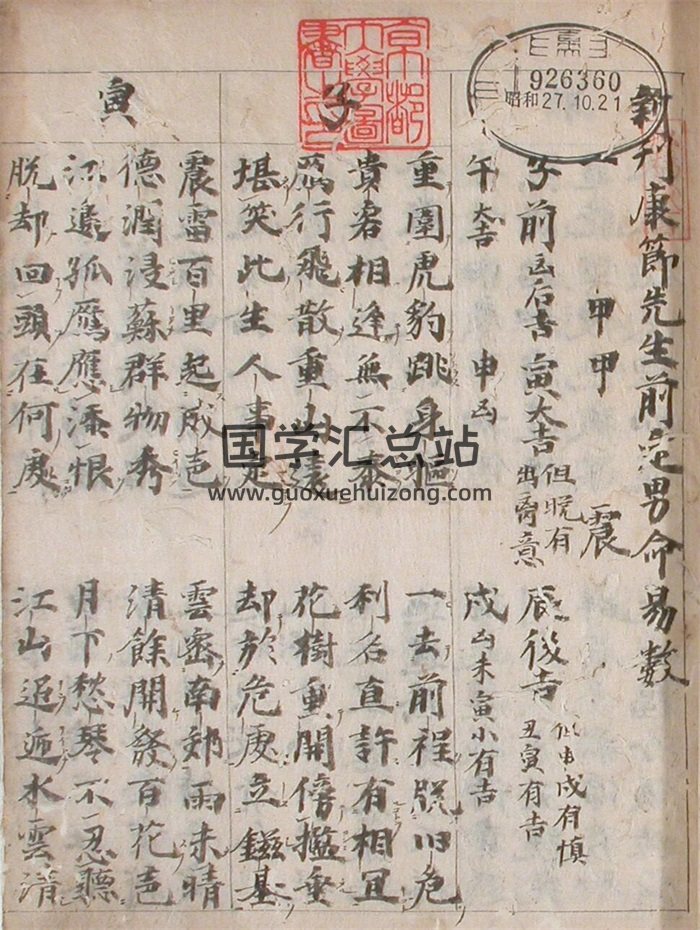 京都
大學圖
書之印
926360
昭和27.10.21
新刊康節先生前定男命易數
一 甲甲 震
子前凶后吉 寅大吉 但晚有出离意 辰後吉 申戌有慎 丑寅有吉
午大吉 申凶 戌凶未寅小有吉
子
重圍虎豹跳身軀 一去前程脱旧危
貴客相逢無不泰 利名直許有相宜
鴈行飛散重山裏 花樹重開傍垂
堪笑此生人事足 却於危處立鎡基
寅
震雷百里起 雲密南郊雨未晴
德潤浸蘇群物秀 清餘開發百花
江邊孤鴈應添恨 月下愁琴不忍聽
脱却回頭在何處 江山迢逓水雲清
国学汇总站
www.guoxuehuizong.com